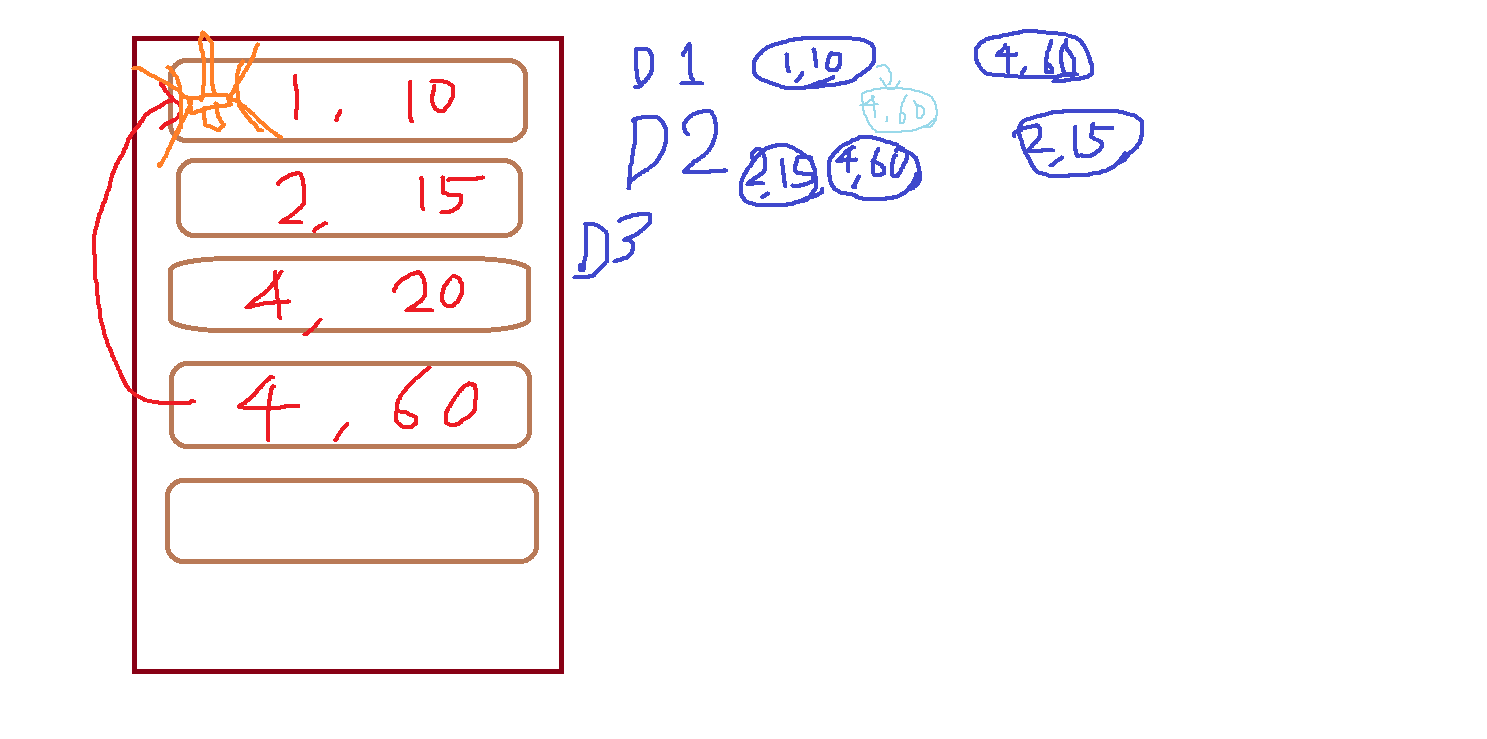 1, 10
2, 15
4, 20
4, 60
D1 1,10 4,60
4,60
D2 2,15, 4,60 2,15
D3